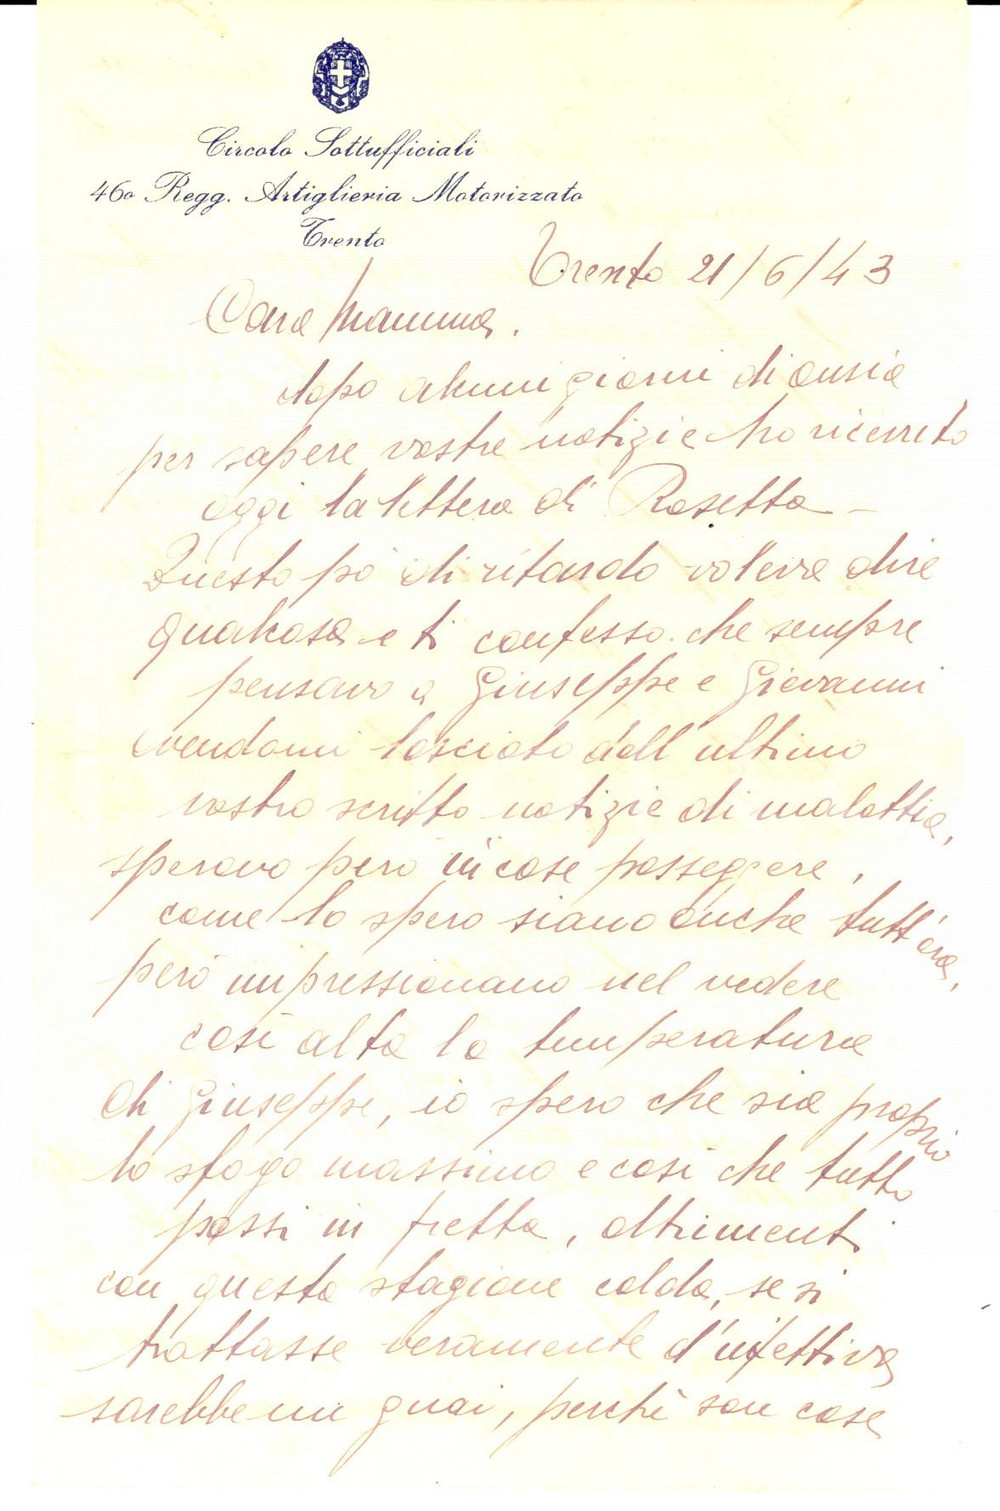 Circolo Sottufficiali
46o Regg. Artiglieria Motorizzato
Trento
Trento 21/6/43
Cara Mamma.
dopo alcuni giorni di ansia
per sapere vostre notizie ho ricevuto
oggi la lettera di Rosetta -
Questo pò di ritardo voleva dire
qualcosa e ti confesso che sempre
pensavo a Giuseppe e Giovanni
avendomi lasciato dall'ultimo
vostro scritto notizie di malattia,
speravo però in cose passeggere,
come lo spero siano anche tutt'ora,
però impressionano nel vedere
così alta la temperatura
di Giuseppe, io spero che sia proprio
lo sfogo massimo e così che tutto
passi in fretta, altrimenti
con questa stagione calda, se si
trattasse veramente d'infettiva
sarebbe un guai, perchè son cose